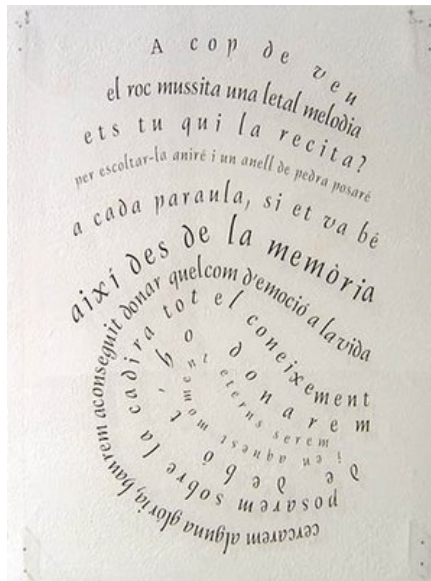 A cop de veu
el roc mussita una letal melodia
ets tu qui la recita?
per escoltar-la aniré i un anell de pedra posaré
a cada paraula, si et va bé
així des de la memòria
cercarem alguna glòria, haurem aconseguit donar quelcom d'emoció a la vida
posarem sobre la cadira tot el coneixement
de debó t'ho donarem
i en aquest moment eterns serem